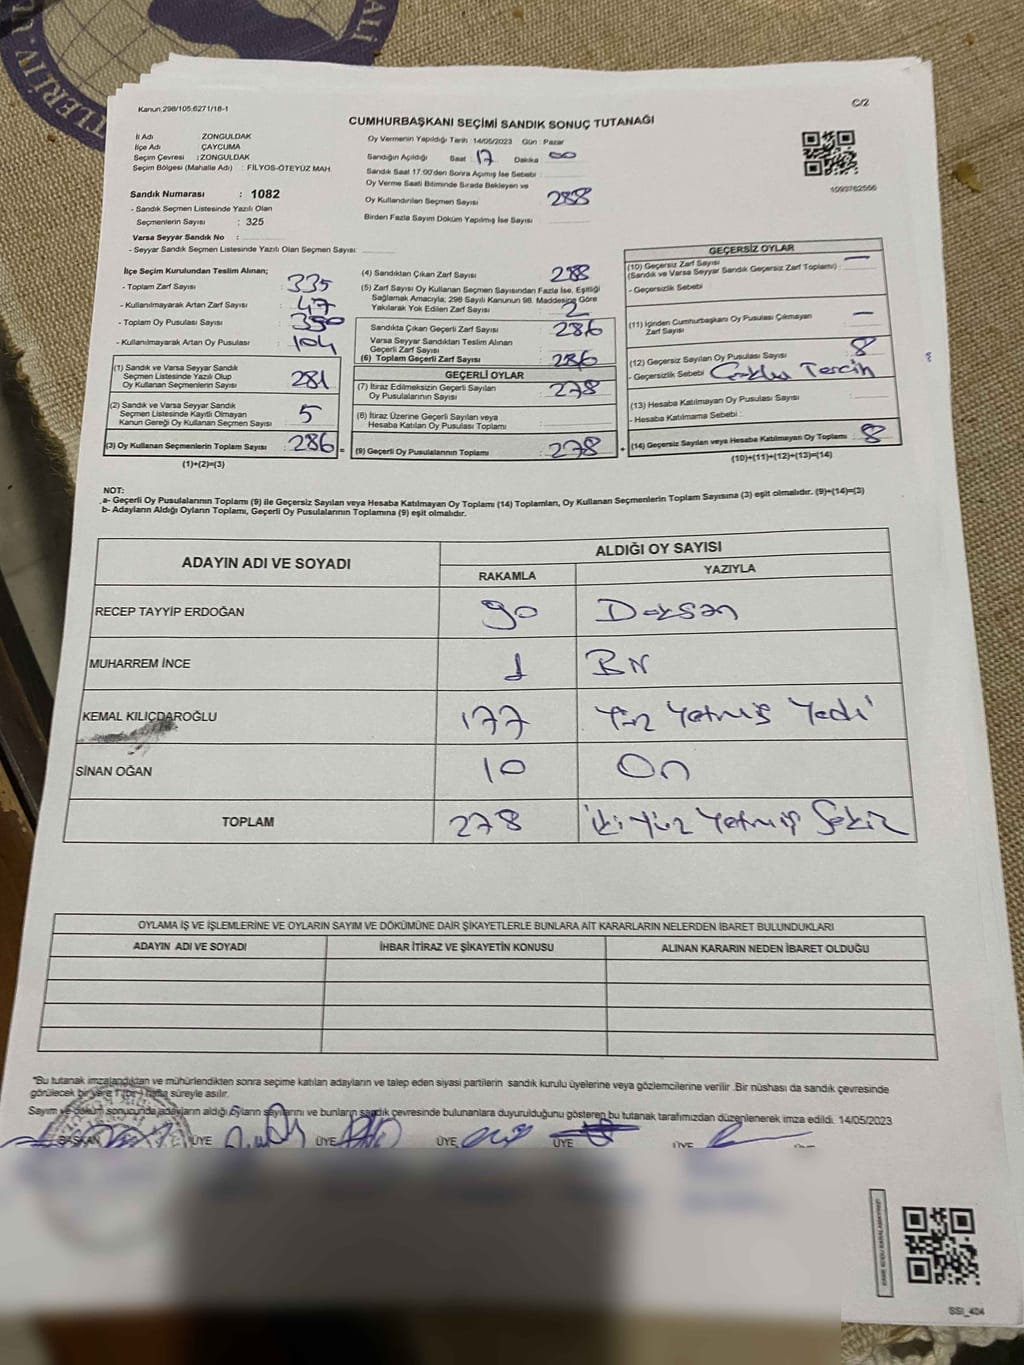 Kanun 298/105,6271/18-1
C/2
CUMHURBAŞKANI SEÇİMİ SANDIK SONUÇ TUTANAĞI
İl Adı ZONGULDAK
İlçe Adı : ÇAYCUMA
Seçim Çevresi : ZONGULDAK
Seçim Bölgesi (Mahalle Adı) : FİLYOS-ÖTEYÜZ MAH.
Sandık Numarası : 1082
- Sandık Seçmen Listesinde Yazılı Olan
Seçmenlerin Sayısı : 325
Varsa Seyyar Sandık No :
- Seyyar Sandık Seçmen Listesinde Yazılı Olan Seçmen Sayısı :
Oy Vermenin Yapıldığı Tarih : 14/05/2023 Gün : Pazar
Sandığın Açıldığı Saat : 17 Dakika : 00
Sandık Saat 17:00'den Sonra Açılmış İse Sebebi :
Oy Verme Saati Bitiminde Sırada Bekleyen ve
Oy Kullandırılan Seçmen Sayısı : 288
Birden Fazla Sayım Döküm Yapılmış İse Sayısı :
1093762566
İlçe Seçim Kurulundan Teslim Alınan;
- Toplam Zarf Sayısı : 335
- Kullanılmayarak Artan Zarf Sayısı : 47
- Toplam Oy Pusulası Sayısı : 390
- Kullanılmayarak Artan Oy Pusulası : 104
(1) Sandık ve Varsa Seyyar Sandık
Seçmen Listesinde Yazılı Olup
Oy Kullanan Seçmenlerin Sayısı : 281
(2) Sandık ve Varsa Seyyar Sandık
Seçmen Listesinde Kayıtlı Olmayan
Kanun Gereği Oy Kullanan Seçmen Sayısı : 5
(3) Oy Kullanan Seçmenlerin Toplam Sayısı : 286 =
(1)+(2)=(3)
(4) Sandıktan Çıkan Zarf Sayısı : 288
(5) Zarf Sayısı Oy Kullanan Seçmen Sayısından Fazla İse, Eşitliği
Sağlamak Amacıyla; 298 Sayılı Kanunun 98. Maddesine Göre
Yakılarak Yok Edilen Zarf Sayısı : 2
Sandıkta Çıkan Geçerli Zarf Sayısı : 286
Varsa Seyyar Sandıktan Teslim Alınan
Geçerli Zarf Sayısı :
(6) Toplam Geçerli Zarf Sayısı : 286
GEÇERLİ OYLAR
(7) İtiraz Edilmeksizin Geçerli Sayılan
Oy Pusulalarının Sayısı : 278
(8) İtiraz Üzerine Geçerli Sayılan veya
Hesaba Katılan Oy Pusulası Toplamı :
(9) Geçerli Oy Pusulalarının Toplamı : 278 +
GEÇERSİZ OYLAR
(10) Geçersiz Zarf Sayısı
(Sandık ve Varsa Seyyar Sandık Geçersiz Zarf Toplamı) : —
- Geçersizlik Sebebi
(11) İçinden Cumhurbaşkanı Oy Pusulası Çıkmayan
Zarf Sayısı : —
(12) Geçersiz Sayılan Oy Pusulası Sayısı : 8
- Geçersizlik Sebebi Çoklu Tercih
(13) Hesaba Katılmayan Oy Pusulası Sayısı :
- Hesaba Katılmama Sebebi :
(14) Geçersiz Sayılan veya Hesaba Katılmayan Oy Toplamı : 8
(10)+(11)+(12)+(13)=(14)
NOT:
a- Geçerli Oy Pusulalarının Toplamı (9) ile Geçersiz Sayılan veya Hesaba Katılmayan Oy Toplamı (14) Toplamları, Oy Kullanan Seçmenlerin Toplam Sayısına (3) eşit olmalıdır. (9)+(14)=(3)
b- Adayların Aldığı Oyların Toplamı, Geçerli Oy Pusulalarının Toplamına (9) eşit olmalıdır.
ADAYIN ADI VE SOYADI ALDIĞI OY SAYISI
RAKAMLA YAZIYLA
RECEP TAYYİP ERDOĞAN 90 Doksan
MUHARREM İNCE 1 Bir
KEMAL KILIÇDAROĞLU 177 Yüz Yetmiş Yedi
SİNAN OĞAN 10 On
TOPLAM 278 İki Yüz Yetmiş Sekiz
OYLAMA İŞ VE İŞLEMLERİNE VE OYLARIN SAYIM VE DÖKÜMÜNE DAİR ŞİKAYETLERLE BUNLARA AİT KARARLARIN NELERDEN İBARET BULUNDUKLARI
ADAYIN ADI VE SOYADI İHBAR İTİRAZ VE ŞİKAYETİN KONUSU ALINAN KARARIN NEDEN İBARET OLDUĞU
*Bu tutanak imzalandıktan ve mühürlendikten sonra seçime katılan adayların ve talep eden siyasi partilerin sandık kurulu üyelerine veya gözlemcilerine verilir .Bir nüshası da sandık çevresinde
görülecek bir yere 1 (bir) hafta süreyle asılır.
Sayım ve döküm sonucunda adayların aldığı oyların sayılarını ve bunların sandık çevresinde bulunanlara duyurulduğunu gösteren bu tutanak tarafımızdan düzenlenerek imza edildi. 14/05/2023
BAŞKAN ÜYE ÜYE ÜYE ÜYE ÜYE
SSI_404